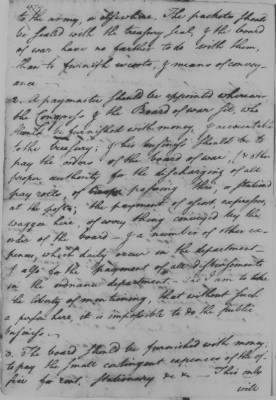 to the army, or elsewhere. The packets should
be sealed with the treasury seal, & the board
of war have no farther to do with them,
than to furnish escorts, & means of convey-
ance
2. A paymaster should be appointed wherever
the Congress & the Board of war sit, who
should be furnished with money, & accountable
to the treasury; & his business should be to
pay the orders of the board of war, & other
proper authority for the discharging of all
pay rolls, of troops passing thro, or stationed
at the posts; the payment of expresses,
waggon hire, of every thing conveyed by the
order of the board — & a number of other ex-
pences, which daily occur in the department —
& also for the payment of all disbursements
in the ordnance department. — I am to take
the liberty of mentioning, that without such
a person here, it is impossible to do the public
business. —
3. The board should be furnished with money,
to pay the small contingent expences of the of-
fice for rent, stationary &c &c — This only
will